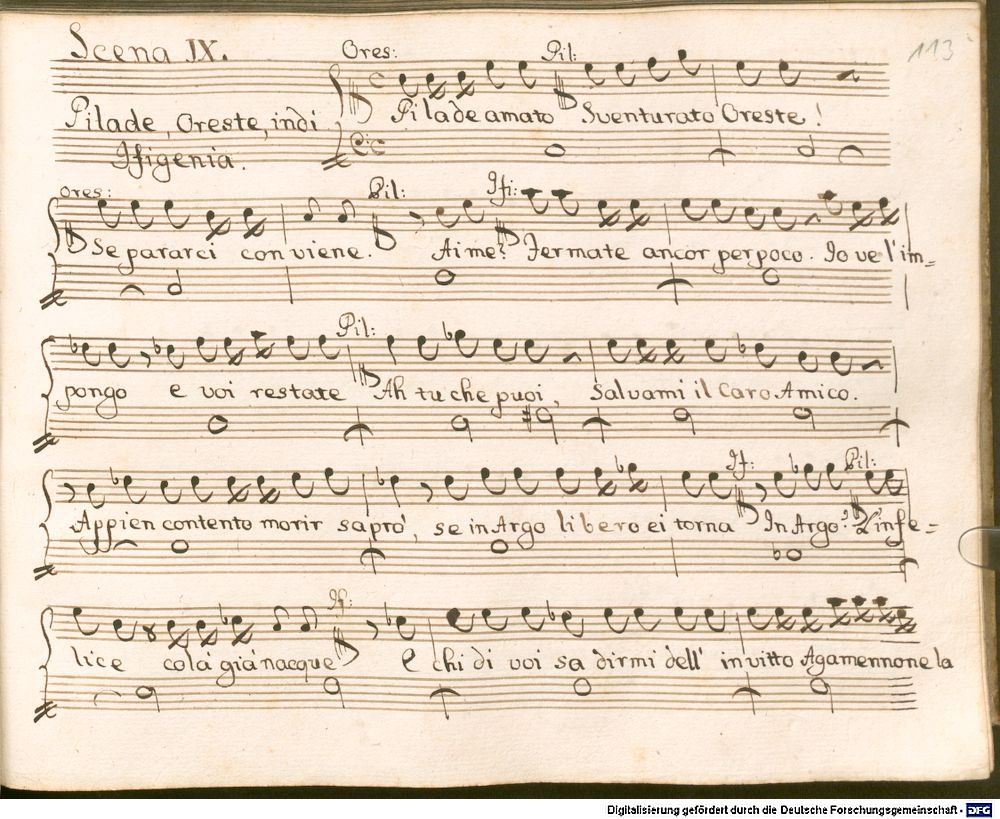 Scena IX. Ores: Pil: 113
Pilade, Oreste, indi
Ifigenia.
Pilade amato Sventurato Oreste!
ores: Pil: Ifi:
Separarci conviene. Aime? Fermate ancor per poco. Io ve l'im=
Pil:
pongo e voi restate Ah tu che puoi, salvami il Caro Amico.
If: Pil:
Appien contento morir sapro', se in Argo libero ei torna In Argo? L'infe=
If:
lice colà già nacque E chi di voi sa dirmi dell' invitto Agamennone la
Digitalisierung gefördert durch die Deutsche Forschungsgemeinschaft - DFG